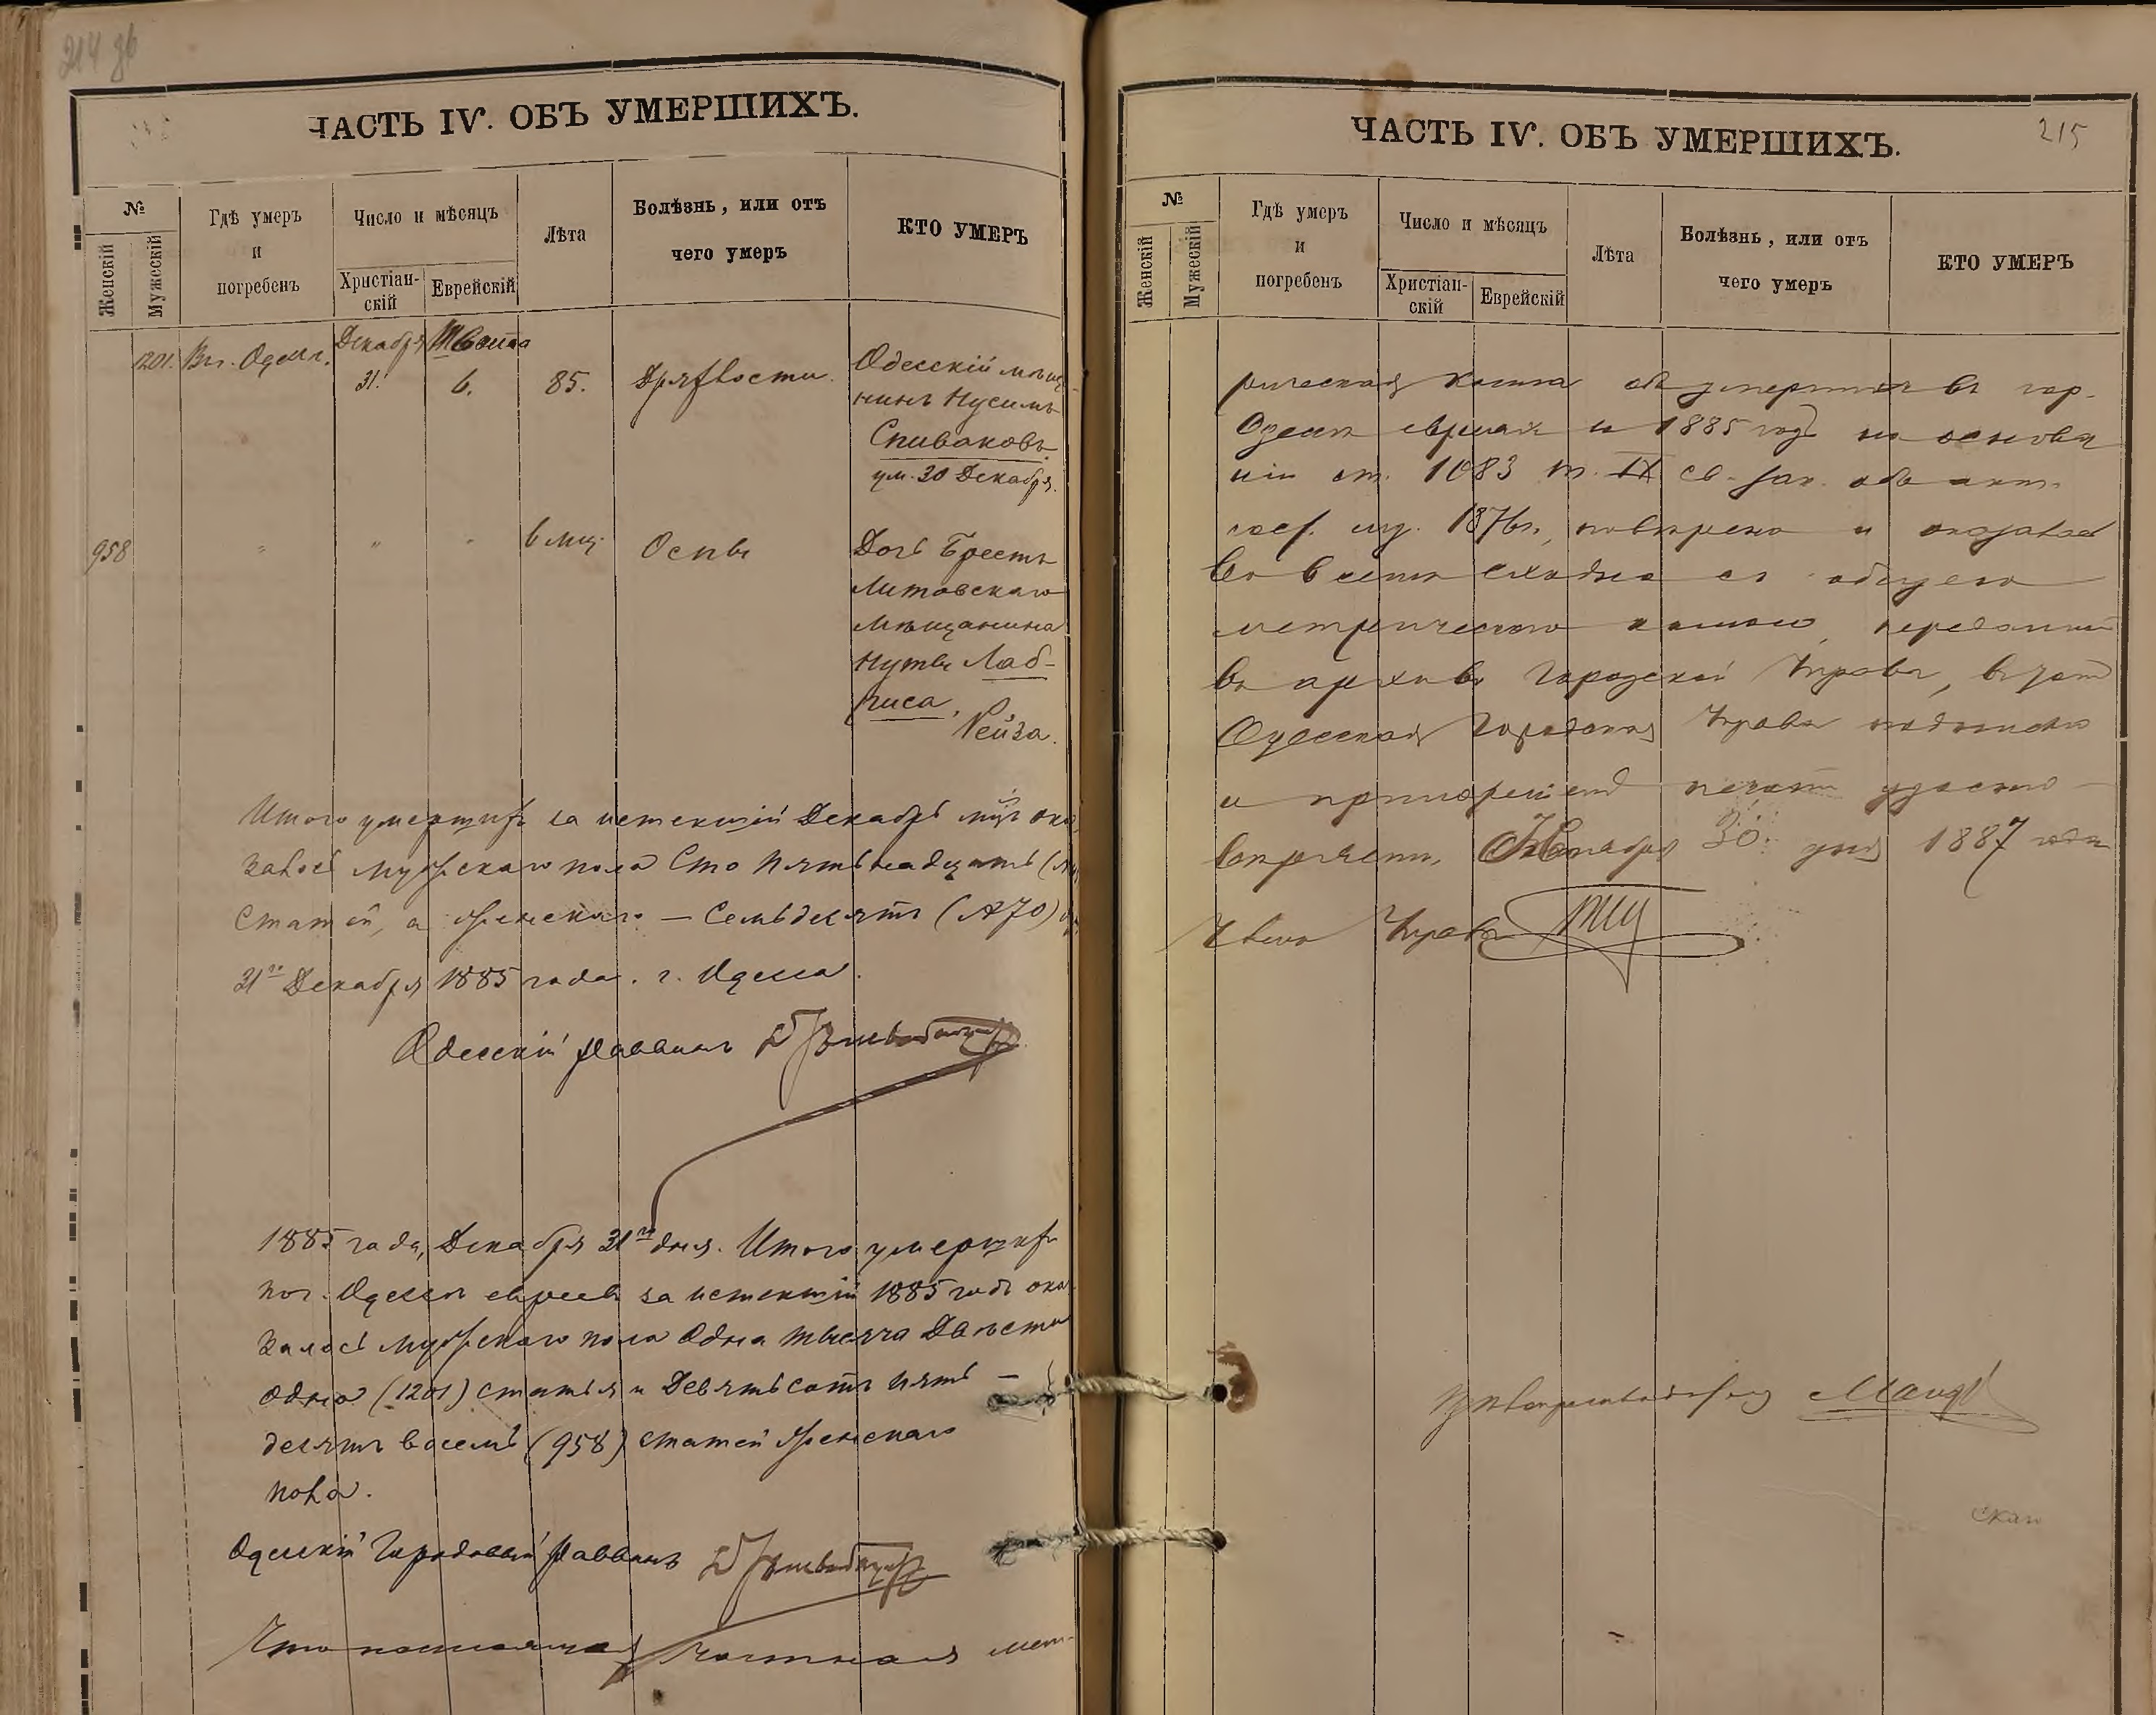 214 об
ЧАСТЬ IV. ОБЪ УМЕРШИХЪ.
№
Женскій
Мужескій
Гдѣ умеръ
и
погребенъ
Число и мѣсяцъ
Христіан-
скій
Еврейскій
Лѣта
Болѣзнь, или отъ
чего умеръ
КТО УМЕРЪ
1201. Въ г. Одессѣ. Декабря 31. Тевета 6. 85. Дряхлости. Одесскій мѣща-
нинъ Нусимъ
Спиваковъ
ум. 30 Декабря.
958 " " " 6 мѣц. Оспы Дочь Брестъ
Литовскаго
Мѣщанина
Нуты Лаб-
риса,
Рейза.
Итого умершихъ за истекшій Декабрь мѣц. ока-
залось мужескаго пола Сто пятьнадцать
Статей, а женскаго — Семьдесятъ (№70)
31го Декабря 1885 года. г. Одесса.
Одесскій Раввинъ
1885 года, Декабря 31го дня. Итого умершихъ
по г. Одессѣ евреевъ за истекшій 1885 годъ ока-
залось мужескаго пола Одна тысяча Двѣсти
одна (1201) статья и Девятьсотъ пять-
десятъ восемь (958) статей женскаго
пола.
Одесскій Городовый Раввинъ
Что настоящая частная мет-
ЧАСТЬ IV. ОБЪ УМЕРШИХЪ.
215
№
Женскій
Мужескій
Гдѣ умеръ
и
погребенъ
Число и мѣсяцъ
Христіан-
скій
Еврейскій
Лѣта
Болѣзнь, или отъ
чего умеръ
КТО УМЕРЪ
рическая книга объ умершихъ въ гор.
Одессѣ евреяхъ за 1885 годъ на основа
ніи ст. 1083 т. IX св. зак. объ акт.
сост. изд. 1876 г., повѣрена и оказалась
во всемъ сходна съ общею
метрическою книгою, переданной
въ архивъ Городской Управы, въ чемъ
Одесская Городская Управа подписью
и приложеніемъ печати удосто-
вѣряетъ. Января 30 дня 1887 года
Членъ Управы